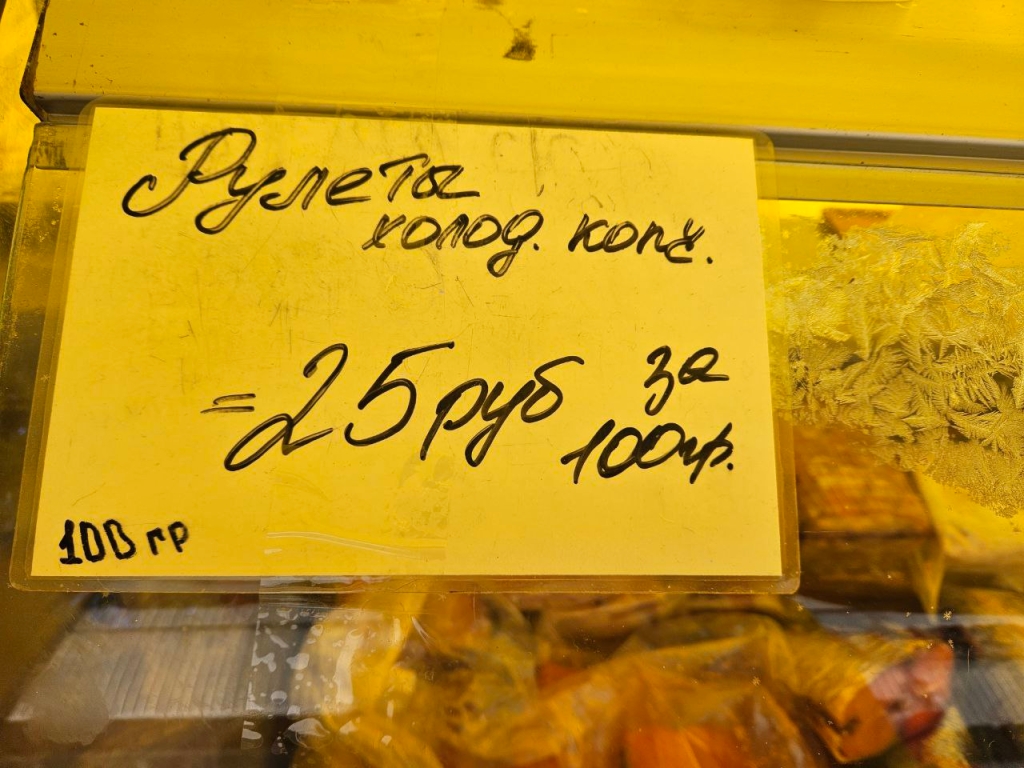 Рулеты
холод. копч.
=25 руб за
100гр.
100 гр